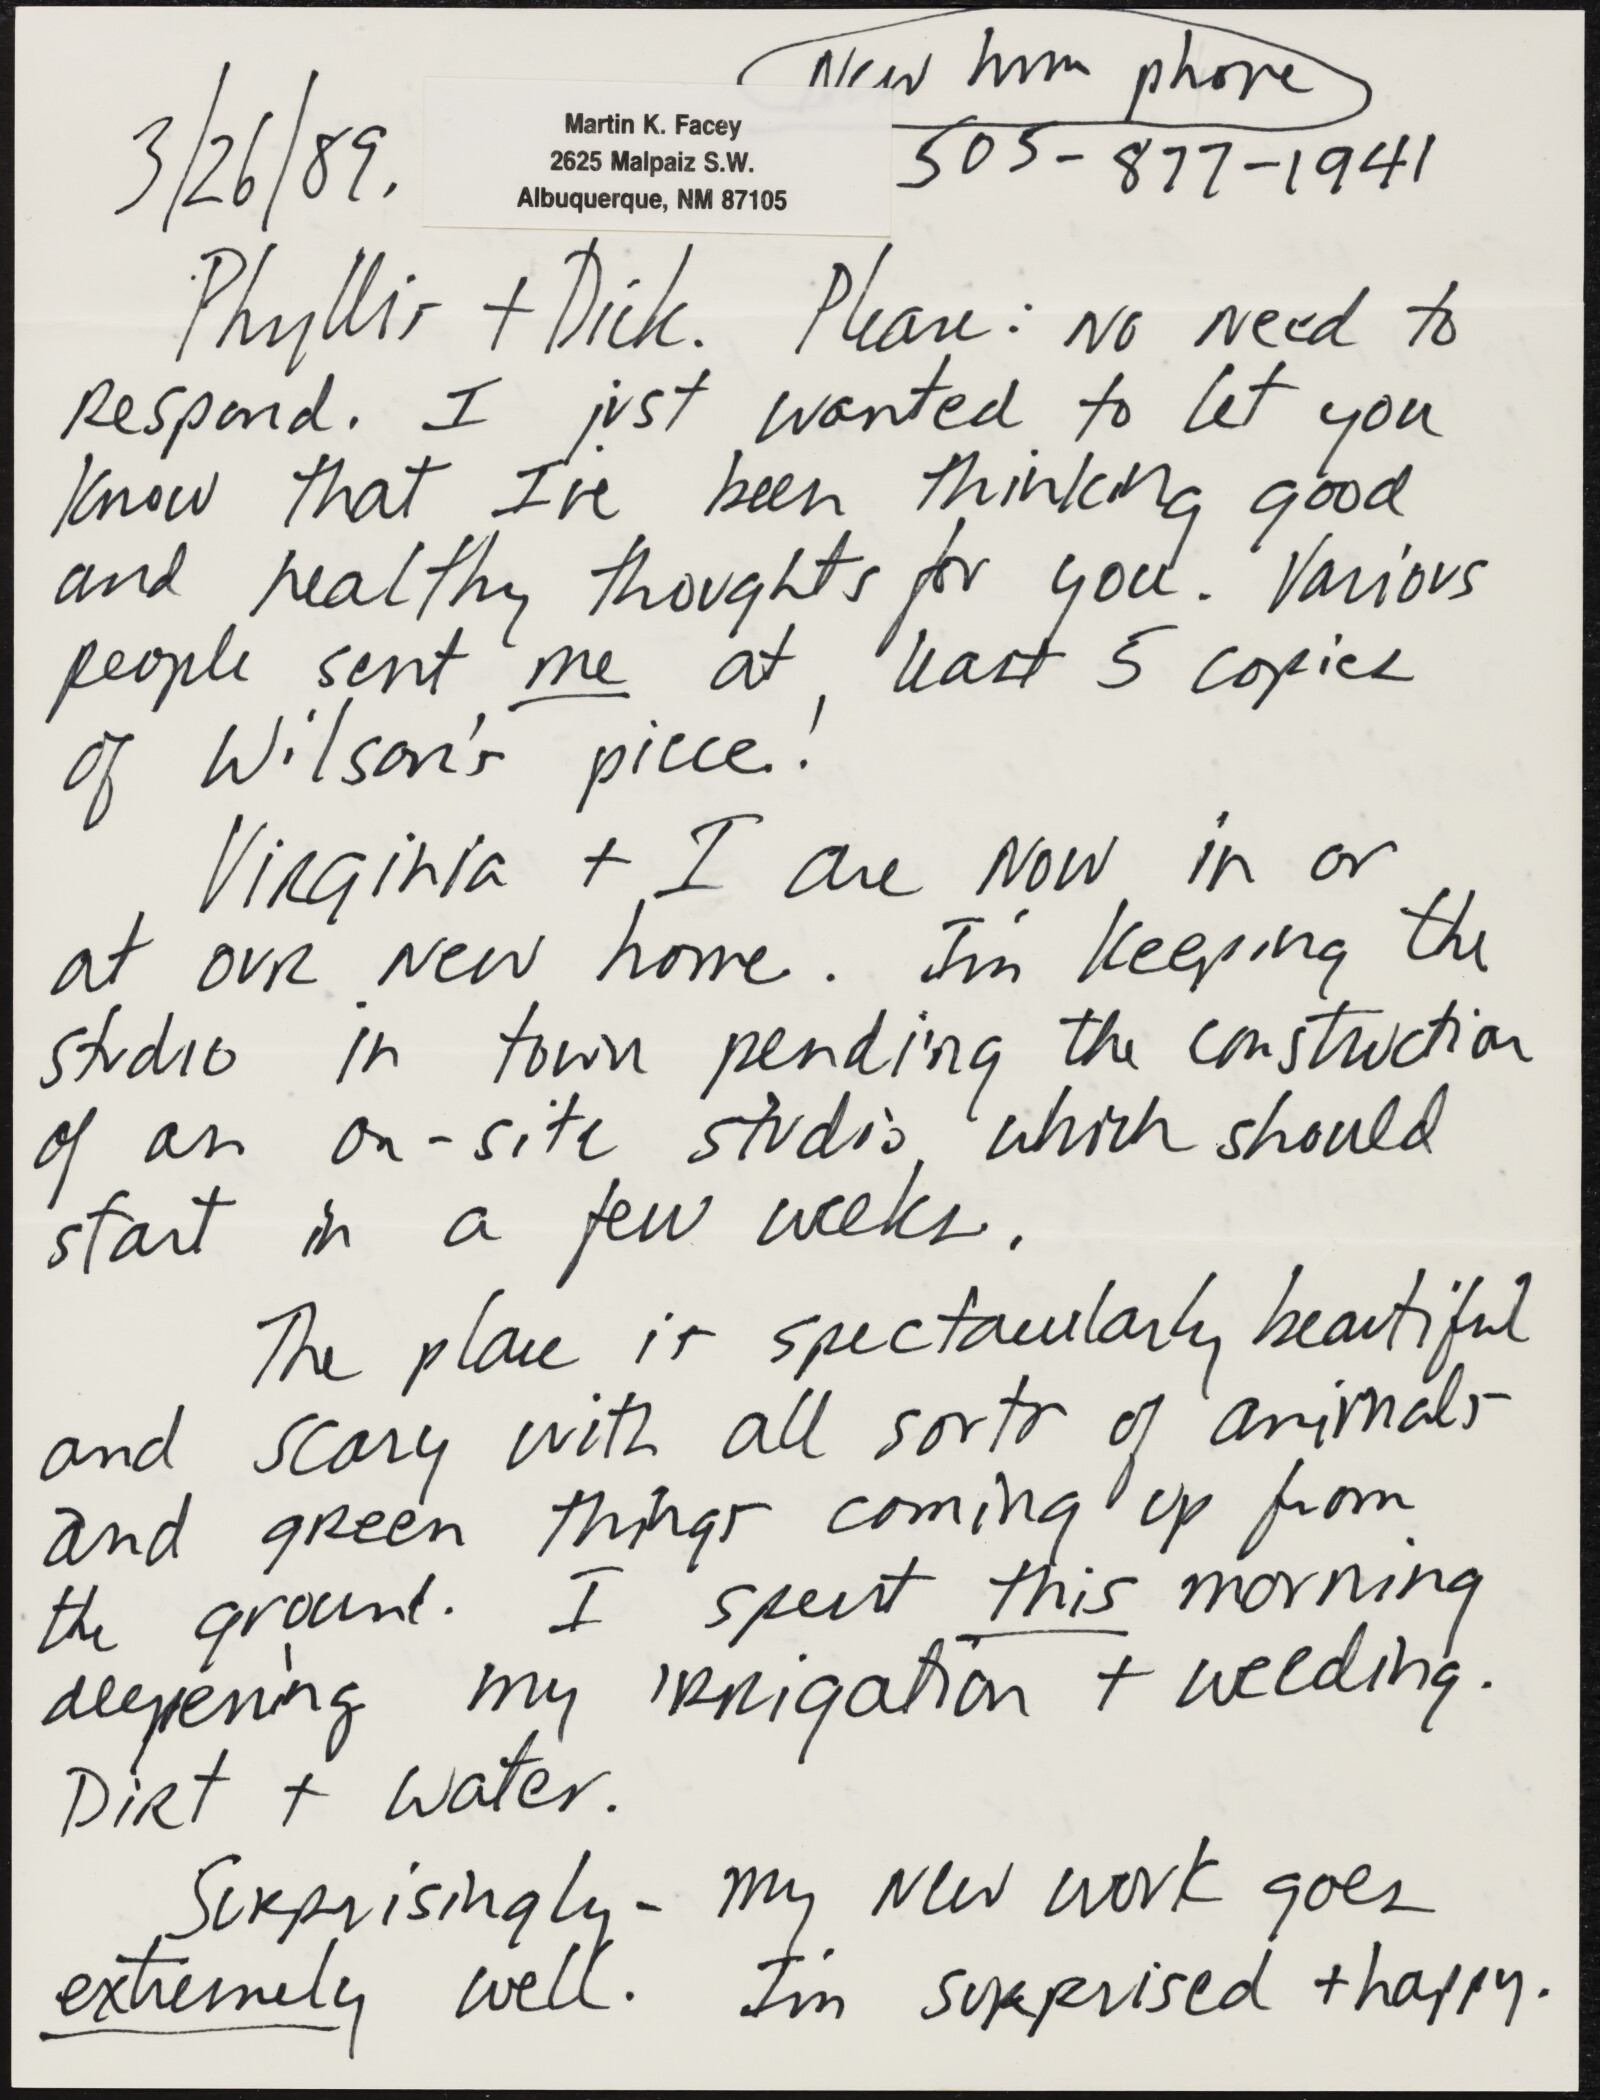 New hom phone
3/26/89.
Martin K. Facey
2625 Malpaiz S.W.
Albuquerque, NM 87105
505-877-1941
Phyllis + Dick. Please: No Need to
respond. I just wanted to let you
know that I've been thinking good
and healthy thoughts for you. Various
people sent me at least 5 copies
of Wilson's piece!
Virginia + I are now in or
at our new home. I'm keeping the
studio in town pending the construction
of an on-site studio, which should
start in a few weeks.
The place is spectacularly beautiful
and scary with all sorts of animals
and green things coming up from
the ground. I spent this morning
deepening my irrigation + weeding.
Dirt + water.
Surprisingly - my new work goes
extremely well. I'm surprised + happy.